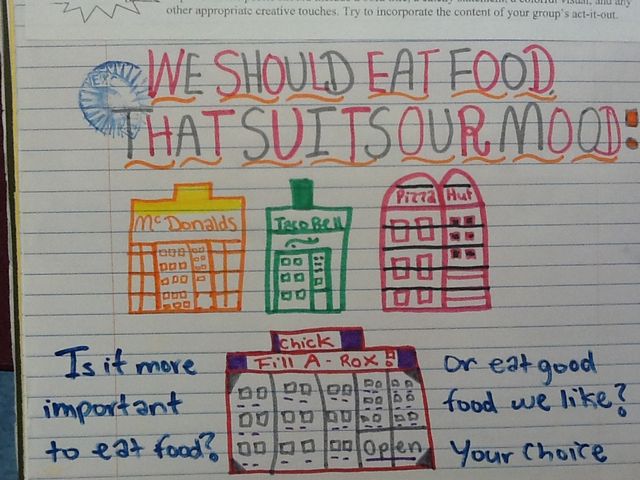 other appropriate creative touches. Try to incorporate the content of your group's act-it-out.
WE SHOULD EAT FOOD
THAT SUITS OUR MOOD:
McDonalds
Taco Bell
Pizza Hut
Chick
Fill A-Rox
Open
Is it more
important
to eat food?
Or eat good
food we like?
Your choice